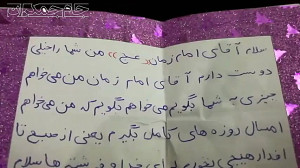 جام جمکران
سلام آقای امام زمان «عج» من شما را خیلی
دوست دارم آقای امام زمان من می‌خواهم
چیزی به شما بگویم می‌خواهم بگویم که من می‌خواهم
امسال روزه های کامل بگیرم یعنی از صبح تا
افطار هیچی نخورم برای خدا و فرشته ها سلام